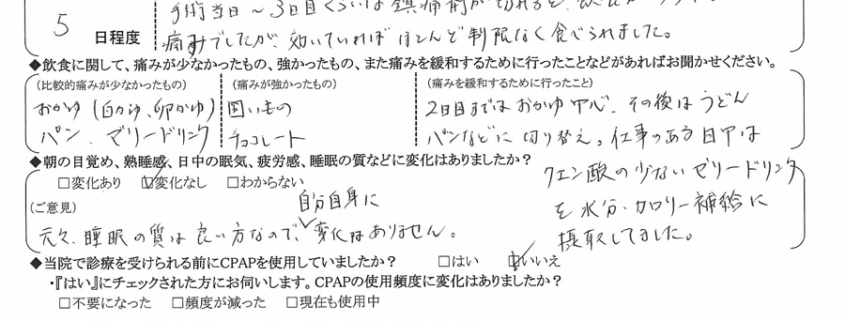 手術当日～3日目くらいは鎮痛剤が切れると、
5
日程度
痛みでしたが、効いていればほとんど制限なく食べられました。
◆飲食に関して、痛みが少なかったもの、強かったもの、また痛みを緩和するために行ったことなどがあればお聞かせください。
(比較的痛みが少なかったもの)
おかゆ(白かゆ、卵かゆ)
パン、ゼリードリンク
(痛みが強かったもの)
固いもの
チョコレート
(痛みを緩和するために行ったこと)
2日目まではおかゆ中心、その後はうどん
パンなどに切り替え。仕事のある日中は
クエン酸の少ないゼリードリンク
を水分・カロリー補給に
摂取してました。
◆朝の目覚め、熟睡感、日中の眠気、疲労感、睡眠の質などに変化はありましたか?
□変化あり ☑変化なし □わからない
(ご意見)
自分自身に
元々、睡眠の質は良い方なので、変化はありません。
◆当院で診療を受けられる前にCPAPを使用していましたか? □はい ☑いいえ
・『はい』にチェックされた方にお伺いします。CPAPの使用頻度に変化はありましたか?
□不要になった □頻度が減った □現在も使用中